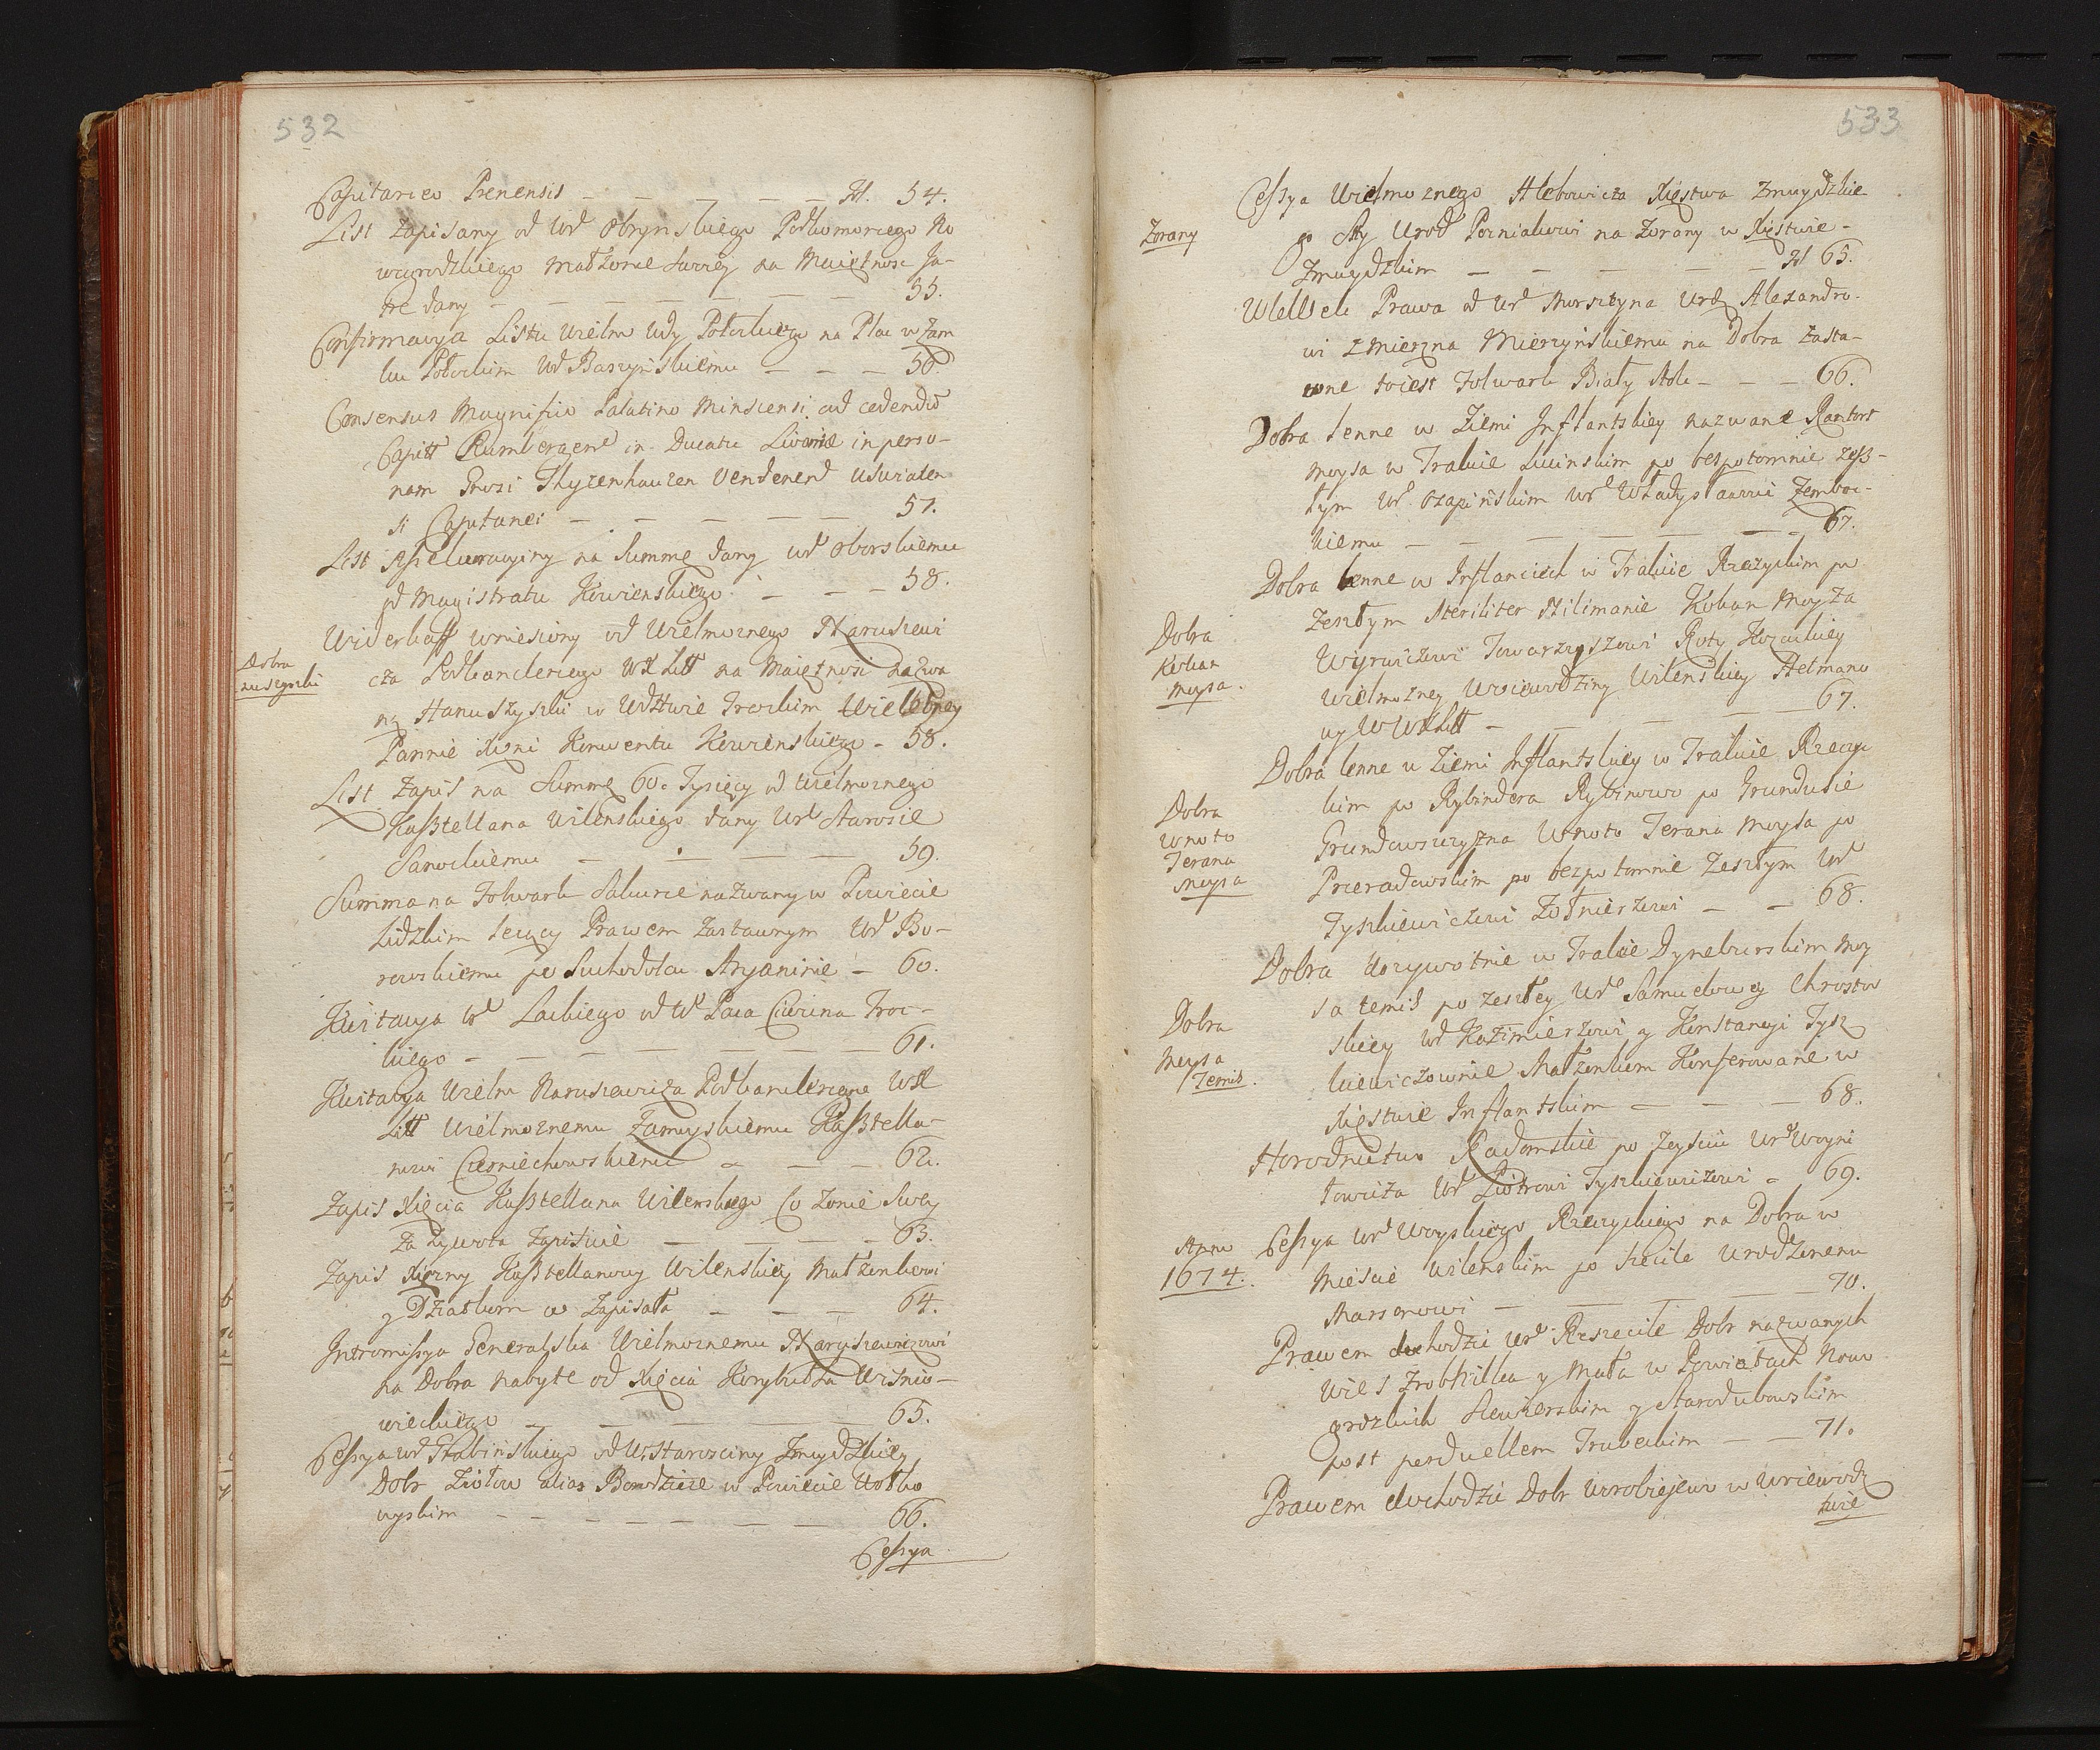 532
Capitaneo Prenensis — — — — — fol. 54.
List zapisany od Ur Obrynskiego Podkomorzego No
wogrodzkiego Małżonce Swoiey na Maiętnosc Ja-
tre dany — — — — — — — 55.
Confirmacya Listu Wielm Wdy Połockiego na Plac w Zam
ku Połockim Ur Baszynskiemu — — — 56.
Consensus Magnifico Palatino Minscensi ad cedendũ
Capitt Rumbergeñ in Ducatu Livoniæ in perso-
nam Grosi Thyzenhauzen Vendeneñ Usuiaten
si Capitanei — — — — — 57.
List Assekuracyiny na Summę dany Ur Oborskiemu
od Magistratu Kowienskiego — — — 58.
Dobra
nuszyszki
Widerkaff wniesiony od Wielmoznego Naruszewi
cza Podkanclerzego WXLitt na Maiętnosc nazwa
ną Hanuszyszki w Wdztwie Trockim Wielebney
Pannie Xieni Konwentu Kowienskiego - 58.
List Zapis na Summę 60. Tysięcy od Wielmoznego
Kasztellana Wilenskiego dany Ur Staroscie
Sanockiemu — — — — 59.
Summa na Folwark Sakunie nazwany w Powiecie
Lidzkim leżący Prawem Zastawnym Ur Bo-
rowskiemu po Suchodolcu Aryaninie — 60.
Kwitacya Ur Lackiego od Ur Paca Ciwuna Troc-
kiego — — — — — — — 61.
Kwitacya Wielm Naruszewicza Podkanclerzego WX
Litt Wielmoznemu Zamoyskiemu Kasztella-
nowi Czerniechowskiemu — — — 62.
Zapis Xięcia Kasztellana Wilenskiego Co Zonie Swey
Za Zywota Zapisuie — — — — 63.
Zapis Xiężny Kasztellanowey Wilenskiey Małżonkowi
y Dziatkom co Zapisała — — — 64.
Intromissya Generalska Wielmoznemu Naruszewiczowi
na Dobra nabyte od Xięcia Korybutha Wisnio-
wieckiego — — — — — — 65.
Cessya Ur Słabinskiego od Ur Starosciny Zmuydzkiey
Dobr Ziołow alias Bowdzicie w Powiecie Wołko
wyskim — — — — — — — 66.
Cessya
533
Cessya Wielmoznego Hlebowicza Xięstwa Zmuydzkie
Zorany
go Sty Urod Pozniakowi na Zorany w Xięstwie-
Zmuydzkim — — — — — fol 65.
Wlewek Prawa od Ur Murszyna Urdz Alexandro-
wi Zmierzna Mierzynskiemu na Dobra Zasta-
wne toiest Folwark Biały Stok — — — 66.
Dobra lenne w Ziemi Inflantskiey nazwane Rantort
moysa w Trakcie Lucinskim po bespotomnie zesz-
łym Ur Czapinskim Ur Władysławowi Zemboc-
kiemu — — — — — — 67.
Dobra lenne w Inflanciech w Trakcie Rzezyckim po
Zeszłym Steriliter Szilimanie Kokan Moyza
Dobra
Kokan
moysa.
Wyrwiczowi Towarzyszowi Roty Kozackiey
Wielmozney Woiewodziny Wilenskiey Hetmano
wey WWXLitt — — — — 67.
Dobra lenne w Ziemi Inflantskiey w Trakcie Rzezyc
kim po Rybindera Rybinowo po Grundusie
Dobra
Wnoto
Terana
Moysa
Grundowszczyzna Wnoto Terana Moysa po
Przeradowskim po bezpotomnie Zeszłym Ur
Tyszkiewiczowi Zołnierzowi — — 68.
Dobra Dozywotnie w Trakcie Dyneburskim Moy
sa Zemis po zeszłey Ur Samuelowey Chrostow
Dobra
Moysa
Zemis.
skiey Ur Kazimierzowi y Konstancyi Tysz
kiewiczownie Małżonkom Konferowane w
Xięstwie Inflantskim — — — 68.
Horodnictwo Radomskie po Zeysciu Ur Woyni
łowicza Ur Piotrowi Tyszkiewiczowi - 69.
Anno
1674.
Cessya Ur Woyskiego Rzeczyckiego na Dobra w
Miescie Wilenskim po Szcicie Urodzonemu
Marsonowi — — — — — 70.
Prawem dochodzic Ur Rzszecile Dobr nazwanych
Wies Zrobkiłka y Mała w Powiatach Nowo
grodzkich Siewierskim y Starodubowskim
post perduellem Trubeckim — — 71.
Prawem dochodzic Dobr Worobiejewo w Woiewodz
twie